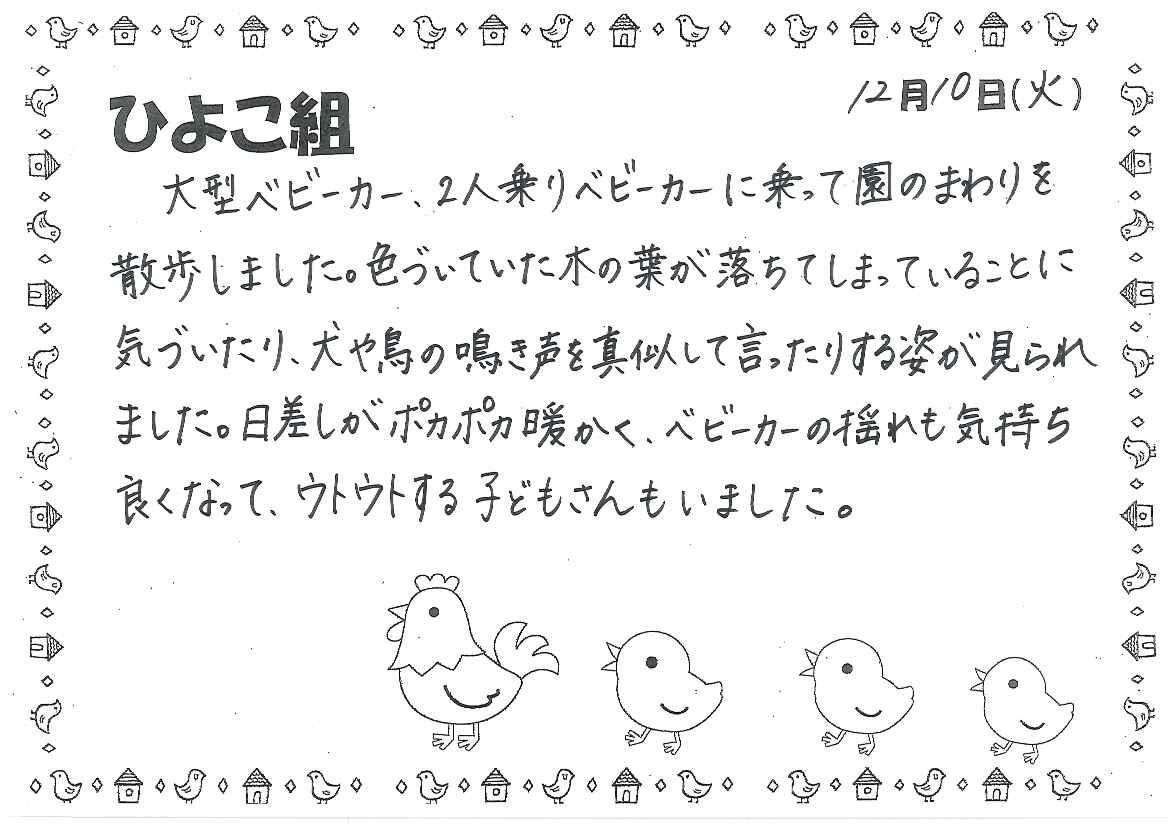 12月10日(火)
ひよこ組
大型ベビーカー、2人乗りベビーカーに乗って園のまわりを
散歩しました。色づいていた木の葉が落ちてしまっていることに
気づいたり、犬や鳥の鳴き声を真似して言ったりする姿が見られ
ました。日差しがポカポカ暖かく、ベビーカーの揺れも気持ち
良くなって、ウトウトする子どもさんもいました。